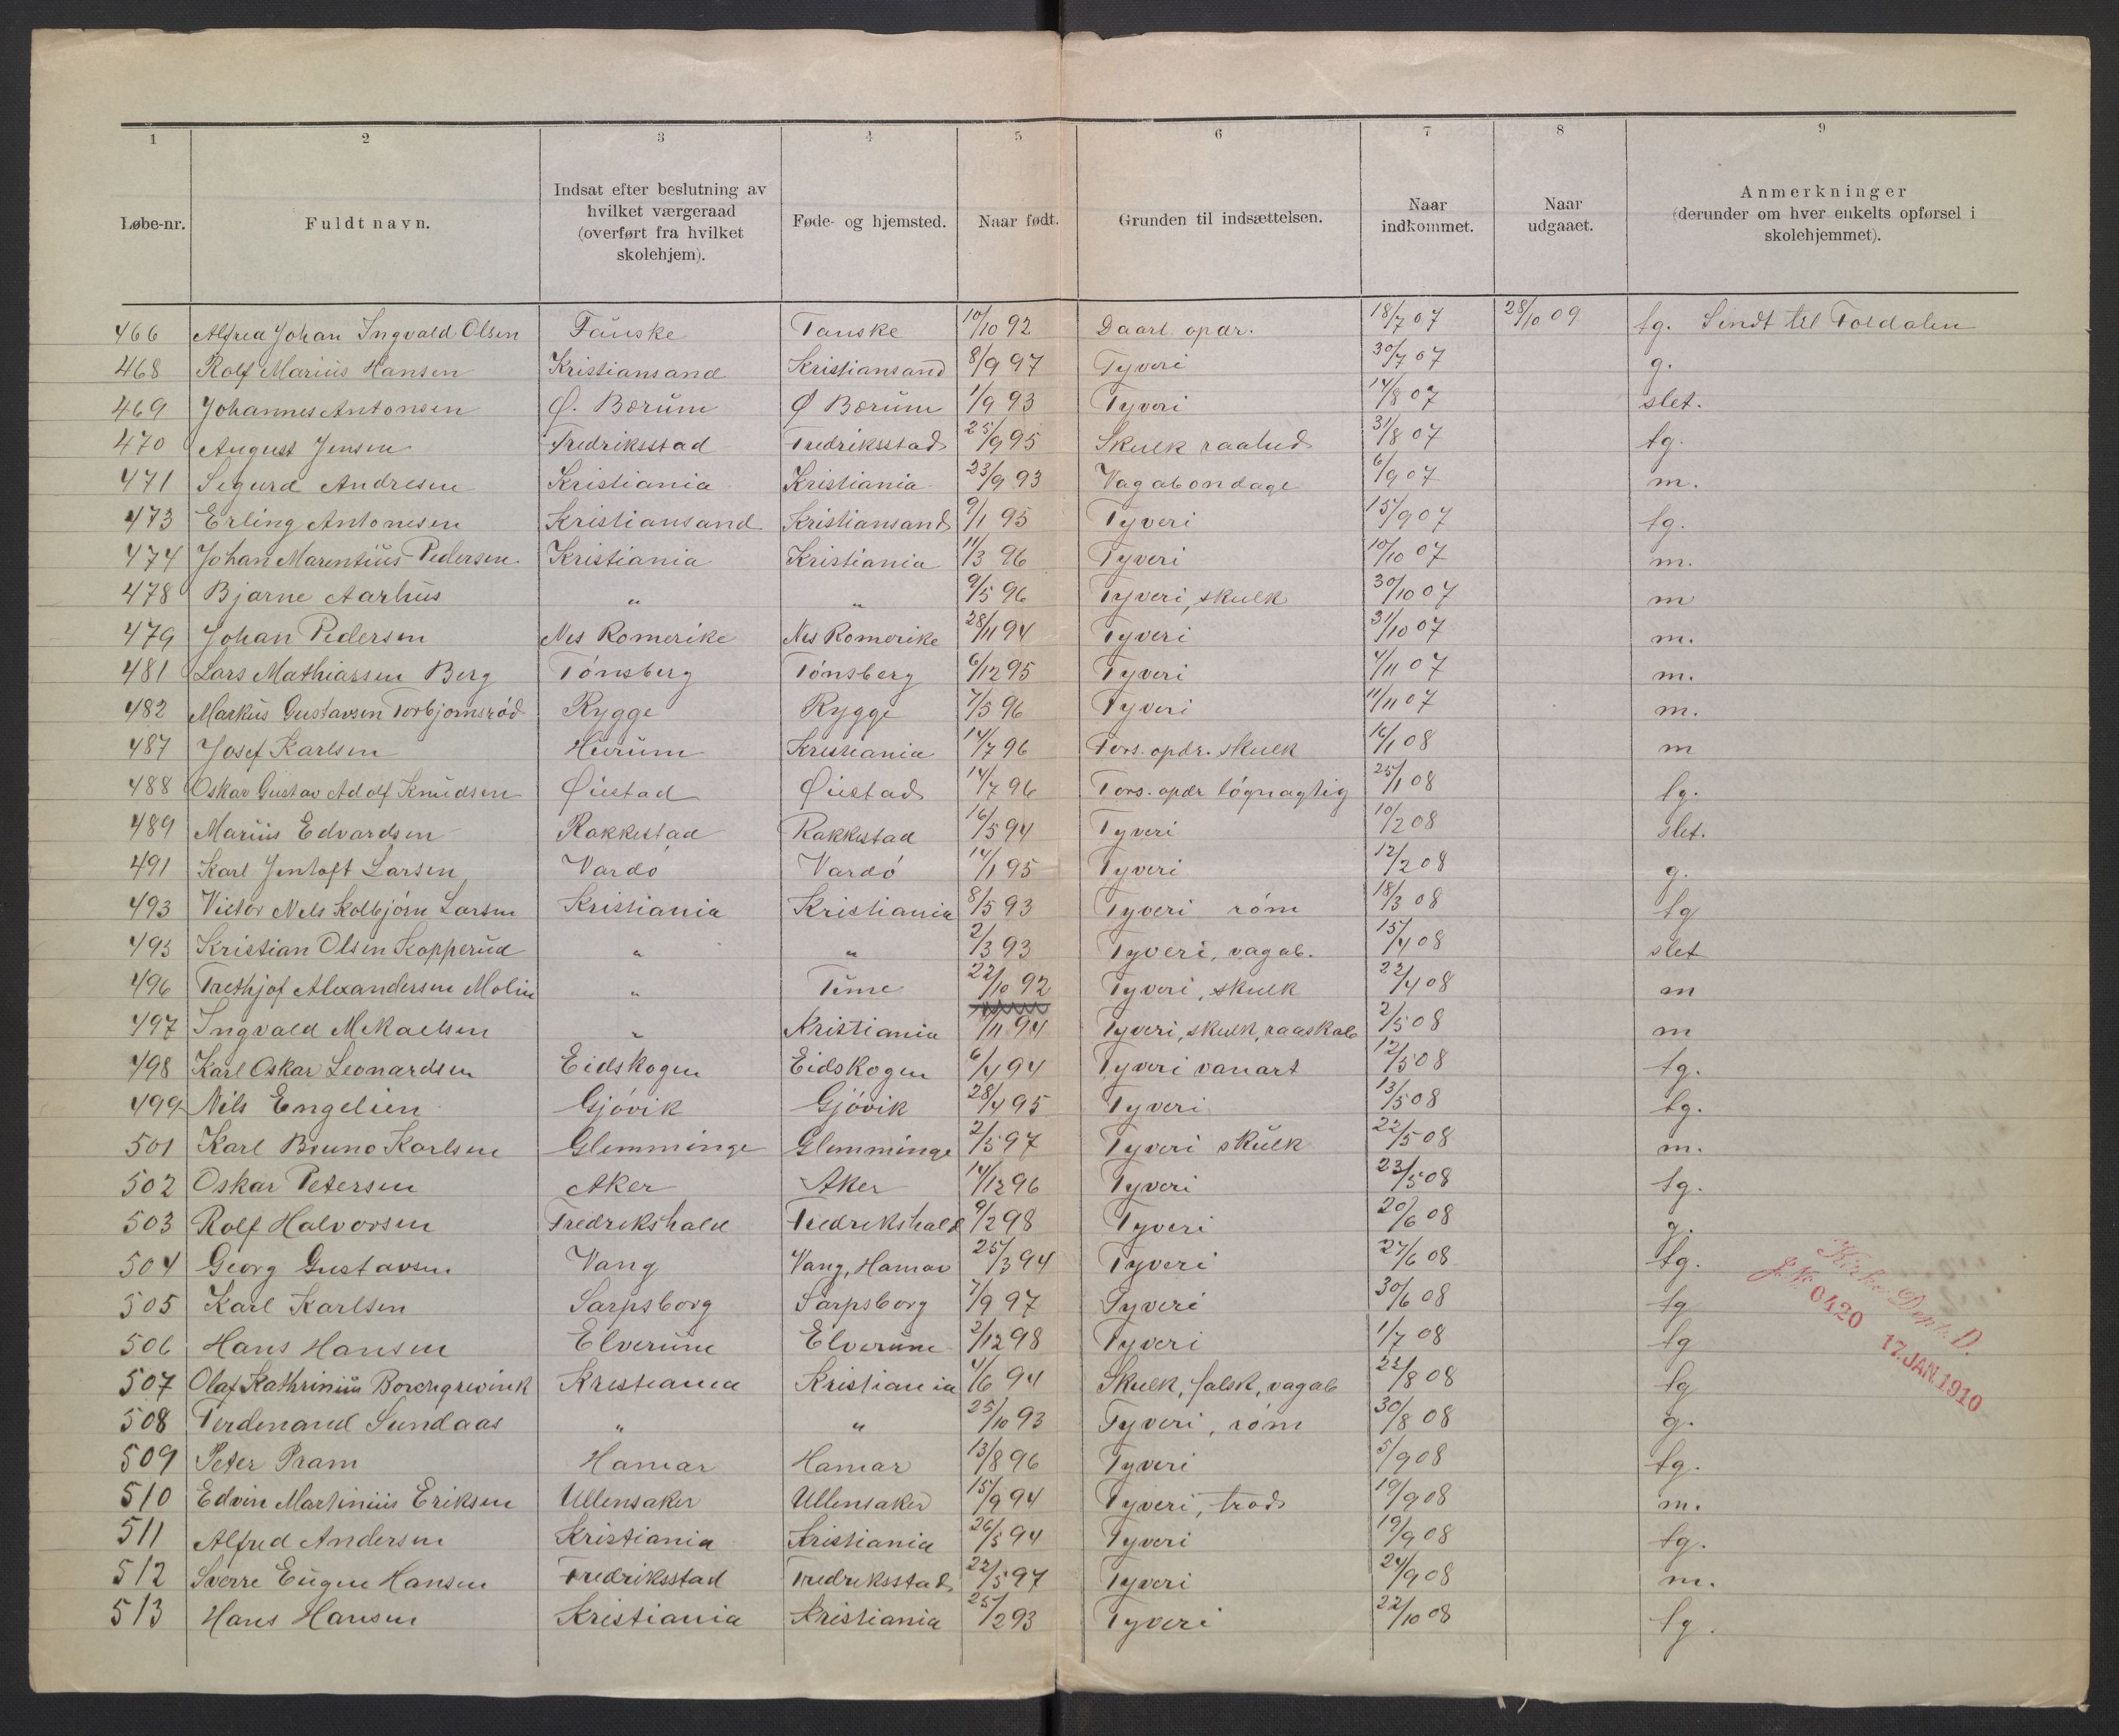 1 2 3 4 5 6 7 8 9
Løbe-nr. Fuldt navn. Indsat efter beslutning av hvilket værgeraad (overført fra hvilket skolehjem). Føde- og hjemsted. Naar født. Grunden til indsættelsen. Naar indkommet. Naar udgaaet. Anmerkninger (derunder om hver enkelts opførsel i skolehjemmet).
466 Alfred Johan Ingvald Olsen Fauske Fauske 10/10 92 Daarl. opdr. 18/7 07 28/10 09 tg. Sendt til Toldalen
468 Rolf Marius Hansen Kristiansand Kristiansand 8/9 97 Tyveri 30/7 07 g.
469 Johannes Antonsen Ø. Bærum Ø Bærum 1/9 93 Tyveri 14/8 07 slet.
470 August Jensen Fredriksstad Fredriksstad 25/9 95 Skulk raahed 31/8 07 tg.
471 Sigurd Andresen Kristiania Kristiania 23/9 93 Vagabondage 6/9 07 m.
473 Erling Antonesen Kristiansand Kristiansand 9/1 95 Tyveri 15/9 07 tg.
474 Johan Marentius Pedersen Kristiania Kristiania 11/3 96 Tyveri 10/10 07 m.
478 Bjarne Aarhus " " 9/5 96 Tyveri, skulk 30/10 07 m
479 Johan Pedersen Nes Romerike Nes Romerike 28/11 94 Tyveri 31/10 07 m.
481 Lars Mathiassen Berg Tønsberg Tønsberg 6/12 95 Tyveri 4/11 07 m.
482 Markus Gustavsen Torbjørnsrød Rygge Rygge 7/5 96 Tyveri 11/11 07 m.
487 Josef Karlsen Hurum Kristiania 14/7 96 Fors. opdr. skulk 16/1 08 m
488 Oskar Gustav Adolf Knudsen Øiestad Øiestad 14/7 96 Fors. opdr løgnagtig 25/1 08 tg.
489 Marius Edvardsen Rakkestad Rakkestad 16/5 94 Tyveri 10/2 08 slet.
491 Karl Jentoft Larsen Vardø Vardø 14/1 95 Tyveri 12/2 08 g.
493 Victor Nels Kolbjørn Larsen Kristiania Kristiania 8/5 93 Tyveri røm 18/3 08 tg
495 Kristian Olsen Kopperud " " 2/3 93 Tyveri, vagab. 15/4 08 slet
496 Frethjof Alexandersen Molin " Time 22/10 92 Tyveri, skulk 22/4 08 m
497 Ingvald Mikaelsen " Kristiania /11 94 Tyveri, skulk, raaskab 2/5 08 m
498 Karl Oskar Leonardsen Eidskogen Eidskogen 6/4 94 Tyveri vanart 12/5 08 tg.
499 Nils Engelien Gjøvik Gjøvik 28/4 95 Tyveri 13/5 08 tg.
501 Karl Bruno Karlsen Glemminge Glemminge 2/5 97 Tyveri skulk 22/5 08 m.
502 Oskar Petersen Aker Aker 14/12 96 Tyveri 23/5 08 tg.
503 Rolf Halvorsen Fredrikshald Fredrikshald 9/2 98 Tyveri 20/6 08 g.
504 Georg Gustavsen Vang Vang, Hamar 25/3 94 Tyveri 27/6 08 tg.
505 Karl Karlsen Sarpsborg Sarpsborg 7/9 97 Tyveri 30/6 08 tg
506 Hans Hansen Elverum Elverum 2/12 98 Tyveri 1/7 08 tg
507 Olaf Kathrinius Borchgrevink Kristiania Kristiania 4/6 94 Skulk, falsk, vagab 22/8 08 tg
508 Ferdenand Sundaas " " 25/10 93 Tyveri, røm 30/8 08 g.
509 Peter Pram Hamar Hamar 13/8 96 Tyveri 5/9 08 tg.
510 Edvin Martinius Eriksen Ullensaker Ullensaker 15/9 94 Tyveri, trods 19/9 08 m.
511 Alfred Andersen Kristiania Kristiania 26/5 94 Tyveri 19/9 08 tg.
512 Sverre Eugen Hansen Fredriksstad Fredriksstad 22/5 97 Tyveri 24/9 08 m.
513 Hans Hansen Kristiania Kristiania 25/2 93 Tyveri 22/10 08 tg.
Kirke Dept. D.
J. No 0420 17.JAN.1910